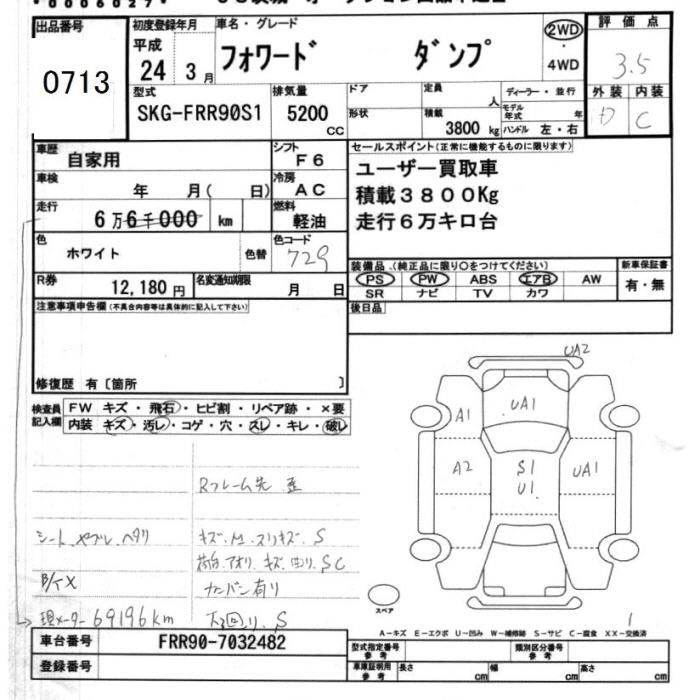 出品番号
0713
初度登録年月
平成
24 3月
車名・グレード
フォワード ダンプ
2WD
・
4WD
評価点
3.5
外装 内装
D C
型式
SKG-FRR90S1
排気量
5200
CC
ドア
形状
定員
人
積載
3800 kg
ディーラー・並行
モデル
年式 年
ハンドル 左・右
車歴
自家用
シフト
F6
車検
年 月( 日)
冷房
AC
走行
6万6千000 km
燃料
軽油
色
ホワイト
色替
色コード
729
R券
12,180 円
名変通知期限
月 日
セールスポイント(正常に機能するものに限ります)
ユーザー買取車
積載3800Kg
走行6万キロ台
装備品 (純正品に限り○をつけてください)
PS PW ABS エアB AW
SR ナビ TV カワ
新車保証書
有・無
後日品
注意事項申告欄(不具合内容等は具体的に記入して下さい)
修復歴 有〔箇所 〕
検査員
記入欄
FW キズ・飛石・ヒビ割・リペア跡・×要
内装 キズ・汚レ・コゲ・穴・スレ・キレ・破レ
Rフレーム先 歪
シート、ヤブレ、ヘタリ
キズ、凹、スリキズ、S
荷台、アオリ、キズ、曲リ、SC
カンバン有り
現メーター 69196km
下回り、S
UA2
UA1
A1
A2
S1
U1
UA1
スペア
1
A－キズ E－エクボ U－凹み W－補修跡 S－サビ C－腐食 XX－交換済
車台番号
FRR90-7032482
登録番号
型式指定番号
参考
類別区分番号
参考
車庫証明用
参考
長さ cm
幅 cm
高さ cm